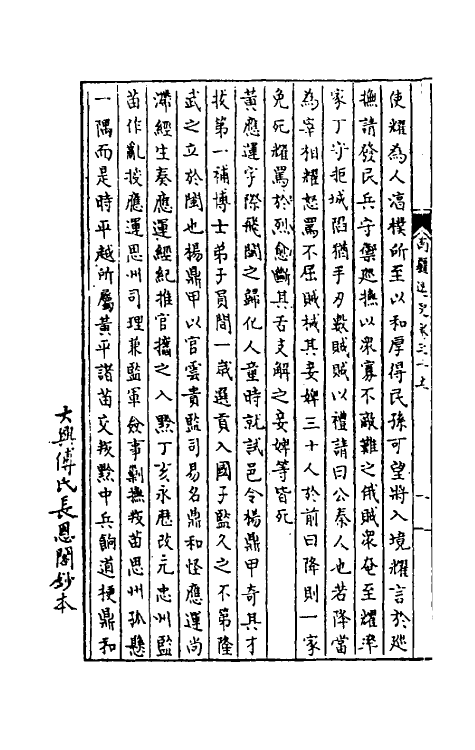 使耀為人渾樸所至以和厚得民孫可望將入境耀言於廵
撫請發民兵守禦廵撫以衆寡不敵難之俄賊衆奄至耀率
家丁守拒城陷猶手刃數賊賊以禮請曰公秦人也若降當
為宰相耀怒罵不屈賊械其妾婢三十人於前曰降則一家
免死耀罵於烈愈斷其舌支解之妾婢等皆死
黄應運字際飛閩之歸化人童時就試邑令楊鼎甲奇其才
拔第一補博士弟子員間一歲選貢入國子監久之不第隆
武之立於閩也楊鼎甲以官雲貴監司易名鼎和怪應運尚
滯經生奏應運經紀推官攜之入黔丁亥永歷改元忠州監
苗作亂授應運思州司理兼監軍僉事勦撫叛苗思州孤懸
一隅而是時平越所屬黄平諸苗交叛黔中兵餉道梗鼎和
大興傅氏長恩閣鈔本